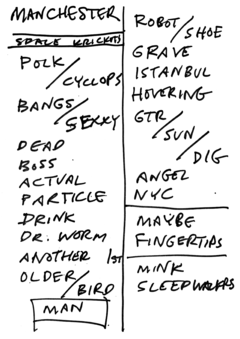 MANCHESTER
SPACE KRICKETS
POLK/
CYCLOPS
BANGS/
SEXXY
DEAD
BOSS
ACTUAL
PARTICLE
DRINK
DR. WORM
ANOTHER 1ST
OLDER/
BIRD
MAN
ROBOT/
SHOE
GRAVE
ISTANBUL
HOVERING
GTR/
SUN/
DIG
ANGEL
NYC
MAYBE
FINGERTIPS
MINK
SLEEPWALKERS